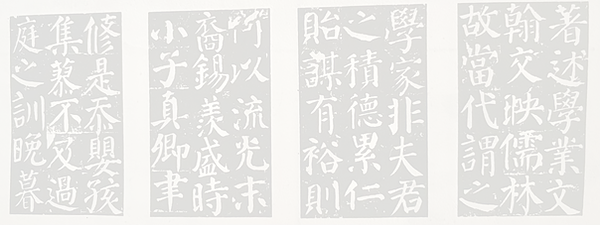 著述學業文
翰交映儒林
故當代謂之
學家非夫君
之積德累仁
貽謀有裕則
何以流光末
裔錫羨盛時
小子真卿聿
脩是忝嬰孩
集蓼不及過
庭之訓晚暮